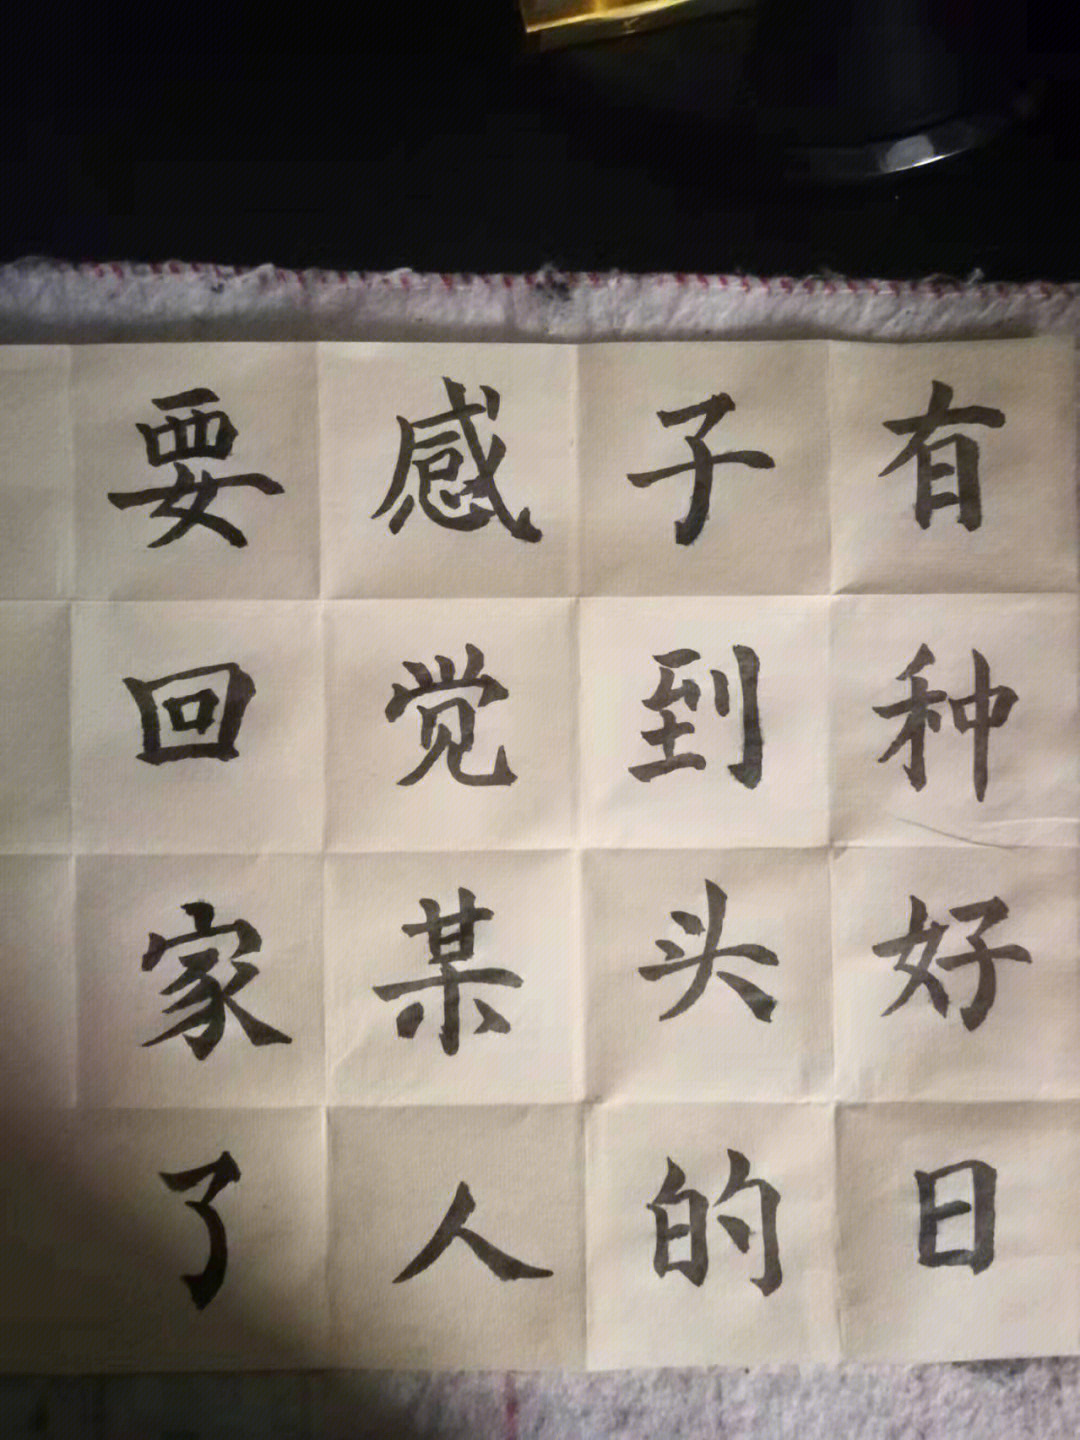 有种好日
子到头的
感觉某人
要回家了